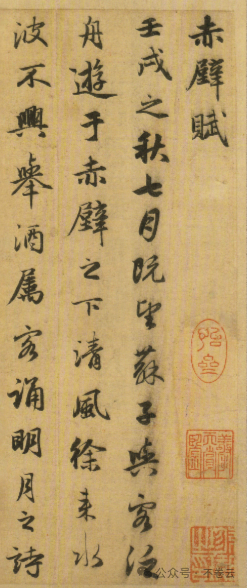 赤壁賦
壬戌之秋七月既望蘇子與客泛
舟遊于赤壁之下清風徐来水
波不興舉酒屬客誦明月之詩
公众号·不老云